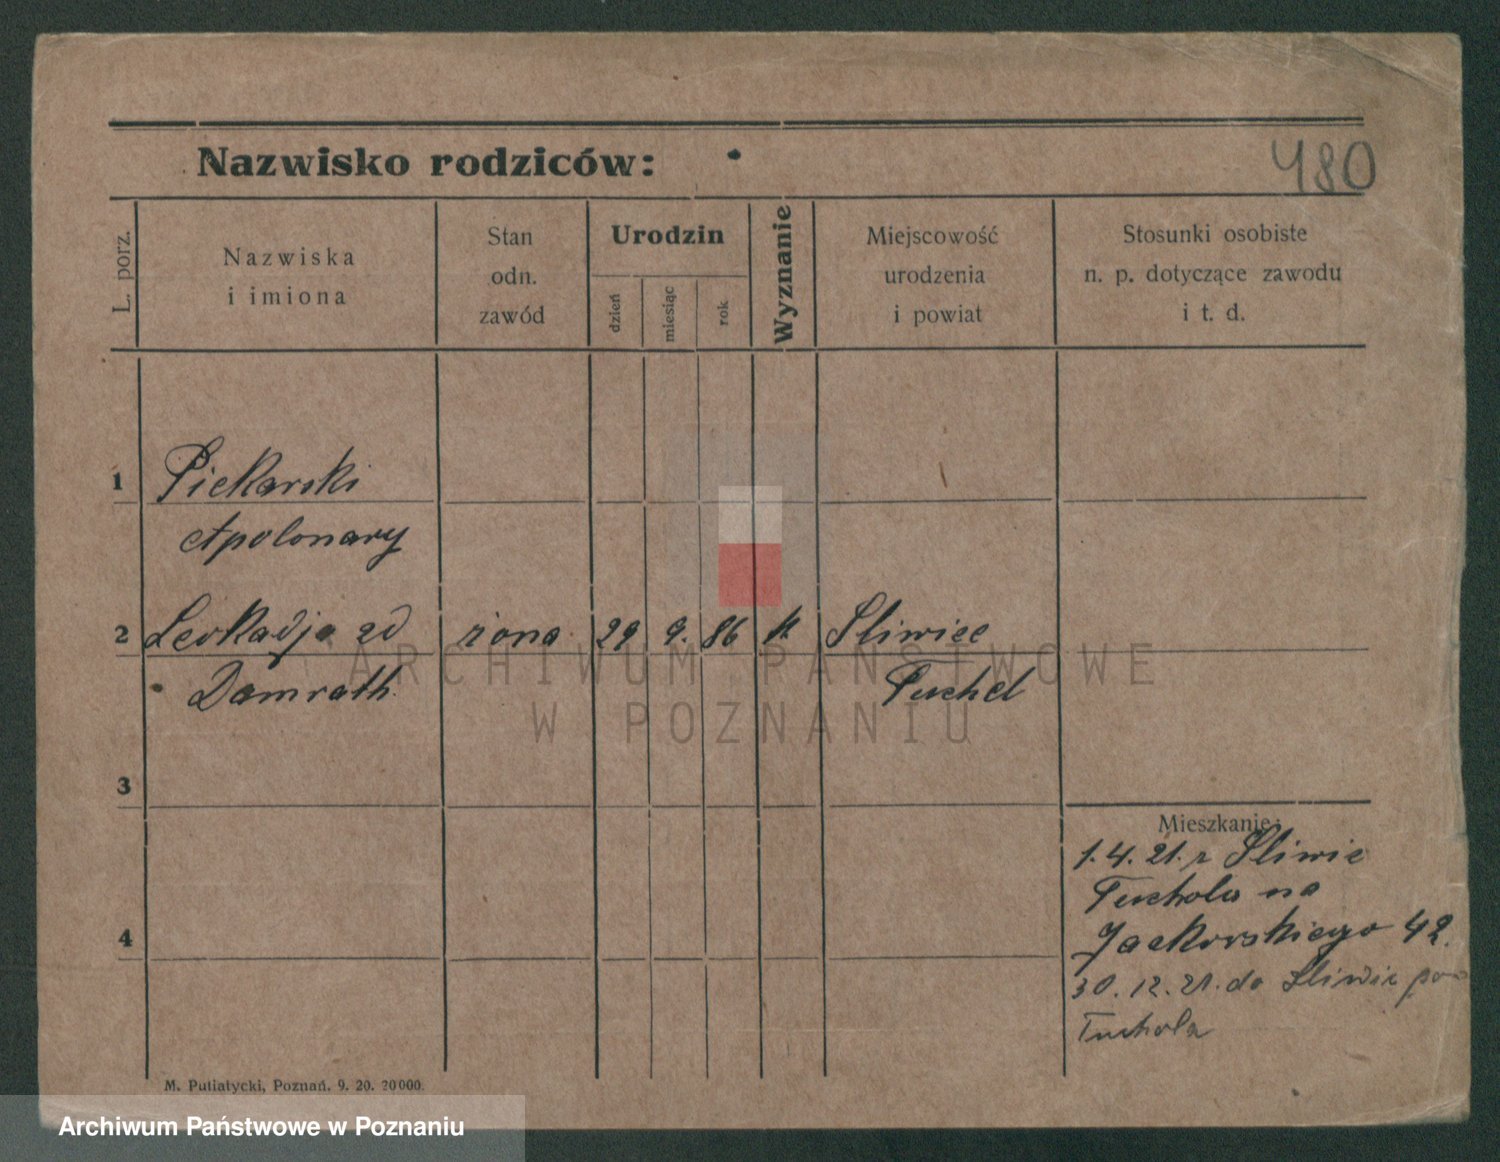 Nazwisko rodziców:
480
L. porz.
Nazwiska
i imiona
Stan
odn.
zawód
Urodzin
dzień
miesiąc
rok
Wyznanie
Miejscowość
urodzenia
i powiat
Stosunki osobiste
n. p. dotyczące zawodu
i t. d.
1 Piekarski
Apolonary
2 Leokadja zd żona 29 9. 86 k. Śliwice
Damrath Tuchel
3
Mieszkanie:
1.4.21. z Śliwic
Tuchola na
Jackowskiego 42.
4
30.12.21. do Śliwic pow
Tuchola
M. Putiatycki, Poznań. 9. 20. 20000.
ARCHIWUM PAŃSTWOWE
W POZNANIU
Archiwum Państwowe w Poznaniu